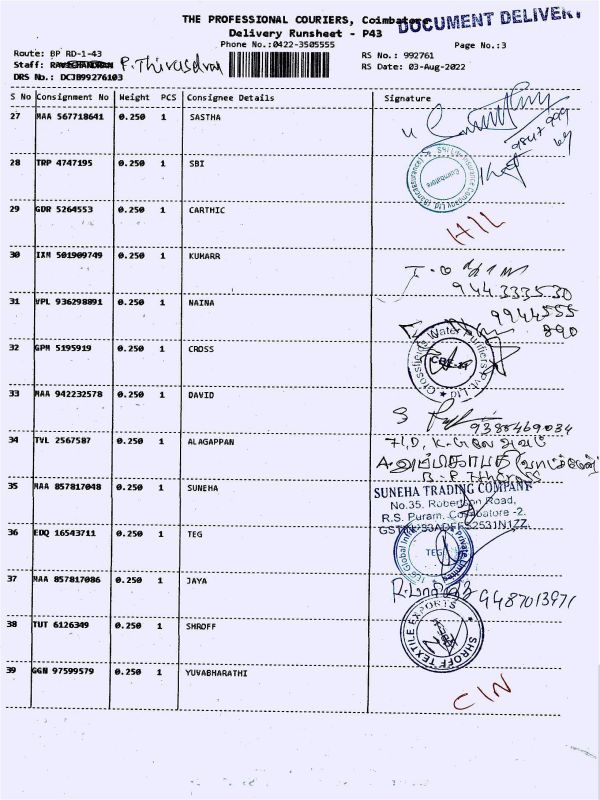 THE PROFESSIONAL COURIERS, Coimbatore
DOCUMENT DELIVERY
Delivery Runsheet - P43
Phone No.:0422-3505555
Page No.:3
Route: BP RD-1-43
RS No.: 992761
Staff: RAVICHANDRAN
RS Date: 03-Aug-2022
DRS No.: DCJB99276103
S No Consignment No Weight PCS Consignee Details Signature
27 MAA 567718641 0.250 1 SASTHA
28 TRP 4747195 0.250 1 SBI
Coimbatore
29 GDR 5264553 0.250 1 CARTHIC
30 IXM 501909749 0.250 1 KUMARR
9443333530
31 VPL 936298891 0.250 1 NAINA
9944555
890
32 GPM 5195919 0.250 1 CROSS
Crossfields Water Purifiers Pvt. Ltd
33 MAA 942232578 0.250 1 DAVID
9388469034
34 TVL 2567587 0.250 1 ALAGAPPAN
35 MAA 857817048 0.250 1 SUNEHA
SUNEHA TRADING COMPANY
No.35, Robertson Road,
R.S. Puram, Coimbatore -2.
36 EDQ 16543711 0.250 1 TEG
TEG
37 MAA 857817086 0.250 1 JAYA
9487013971
38 TUT 6126349 0.250 1 SHROFF
SHROFF TEXTILE EXPORTS
39 GGN 97599579 0.250 1 YUVABHARATHI
CIN